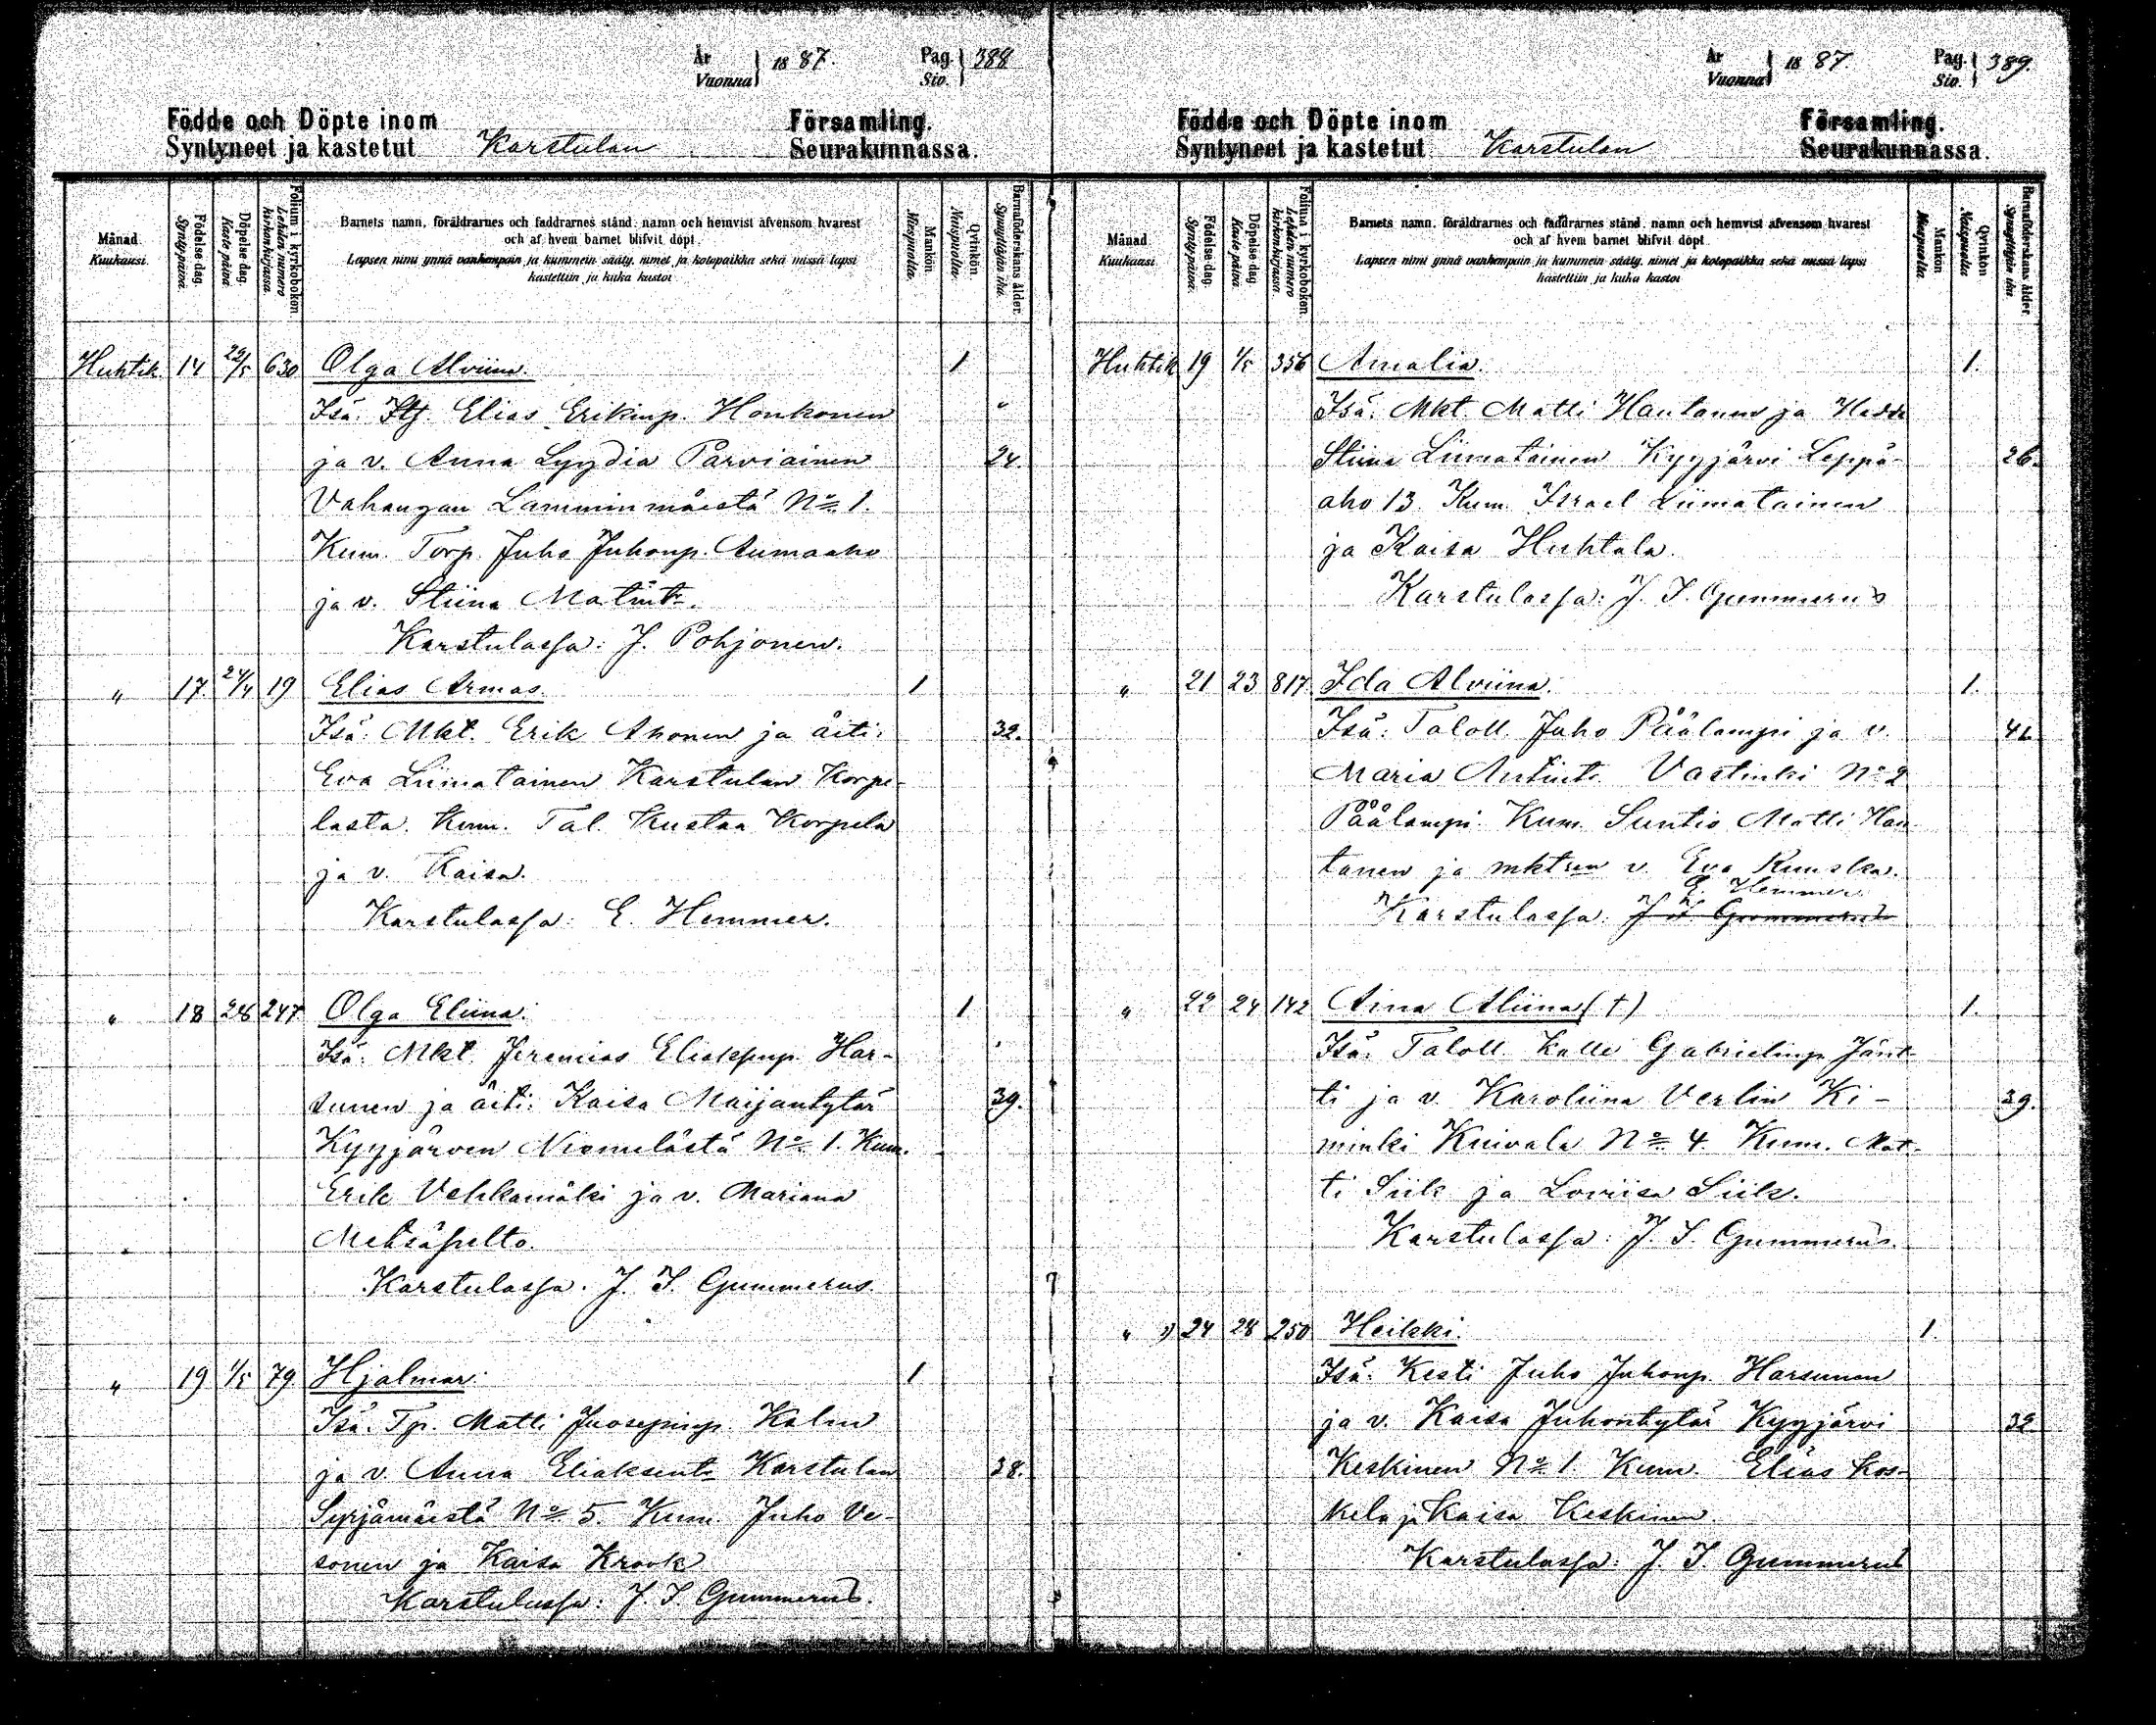 År
Vuonna 1887.
Pag.
Siv. 388
Födde och Döpte inom Församling.
Syntyneet ja kastetut Karstulan Seurakunnassa.
Månad.
Kuukausi.
Födelse dag.
Syntypäivä.
Döpelse dag.
Kaste päivä
Folium i kyrkoboken.
Lehden numero kirkonkirjassa.
Barnets namn, föräldrarnes och faddrarnes stånd, namn och hemvist äfvensom hvarest
och af hvem barnet blifvit döpt.
Lapsen nimi ynnä vanhempain ja kummein sääty, nimet ja kotopaikka sekä missä lapsi
kastettiin ja kuka kastoi
Mankön
Miespuolia.
Qvinkön
Naispuolia.
Barnaföderskans ålder.
Synnyttäjän ikä.
Huhtik. 14 29/5 630 Olga Alviina. 1
Isä: Itj. Elias Erikinp. Honkonen
ja v. Anna Lyydia Parviainen 24.
Vahangan Lamminmäestä No 1.
Kum. Torp. Juho Juhonp. Aumaaho
ja v. Stiina Matint.
Karstulassa: J. Pohjonen.
" 17. 24/4 19 Elias Armas. 1
Isä: Mkt. Erik Ahonen ja äiti: 32.
Eva Liimatainen Karstulan Korpe-
lasta. Kum. Tal. Kustaa Korpela
ja v. Kaisa.
Karstulassa: E. Hemmer.
" 18 28 247 Olga Eliina. 1
Isä: Mkt. Jeremias Har-
sunen ja äiti: Kaisa Maijantytär 39.
Kyyjärven Niemelästä No 1. Kum.
Erik Vehkamäki ja v. Mariana
Metsäpelto.
Karstulassa. J. I. Gummerus.
" 19 1/5 79 Hjalmar. 1
Isä. Tp. Matti Juosepinp. Kalm
ja v. Anna Eliaksent. Karstulan 38.
Syrjämäestä No 5. Kum. Juho Ve-
sonen ja Kaisa Krook
Karstulassa: J. I. Gummerus.
År
Vuonna 1887
Pag.
Siv. 389.
Födde och Döpte inom Församling.
Syntyneet ja kastetut Karstulan Seurakunnassa.
Månad
Kuukausi
Födelse dag.
Syntypäivä.
Döpelse dag
Kaste päivä.
Folium i kyrkoboken.
Lehden numero kirkonkirjassa.
Barnets namn, föräldrarnes och faddrarnes stånd, namn och hemvist äfvensom hvarest
och af hvem barnet blifvit döpt.
Lapsen nimi ynnä vanhempain ja kummein sääty, nimet ja kotopaikka sekä missä lapsi
kastettiin ja kuka kastoi
Mankön
Miespuolia.
Qvinkön
Naispuolia
Barnaföderskans ålder.
Synnyttäjän ikä
Huhtik 19 1/5 356 Amalia. 1.
Isä: Mkt Matti Hautanen ja Hedda
Stiina Liimatainen Kyyjärvi Leppä- 26.
aho 13. Kum. Israel Liimatainen
ja Kaisa Huhtala.
Karstulassa: J. I. Gummerus
" 21 23 817 Ida Alviina. 1.
Isä: Taloll. Juho Päälampi ja v. 42
Maria Antint. Vastinki No 2
Päälampi. Kum. Suntio Matti Hau
tanen ja mktsen v. Eva Ruuska.
E. Hemmer
Karstulassa: J I Gummerus
" 22 24 142 Aina Aliina (†) 1.
Isä: Taloll. Kalle Gabrielinp. Jänt-
ti ja v. Karoliina Verlin Ki- 39.
minki Kuivala No 4. Kum. Mat-
ti Siik ja Loviisa Siik.
Karstulassa: J. I. Gummerus.
" 24 28 250 Heikki. 1.
Isä: Kesti Juho Juhonp. Harsunen
ja v. Kaisa Juhontytär Kyyjärvi 32
Keskinen No 1. Kum. Elias Kos-
kela ja Kaisa Keskinen.
Karstulassa: J. I Gummerus